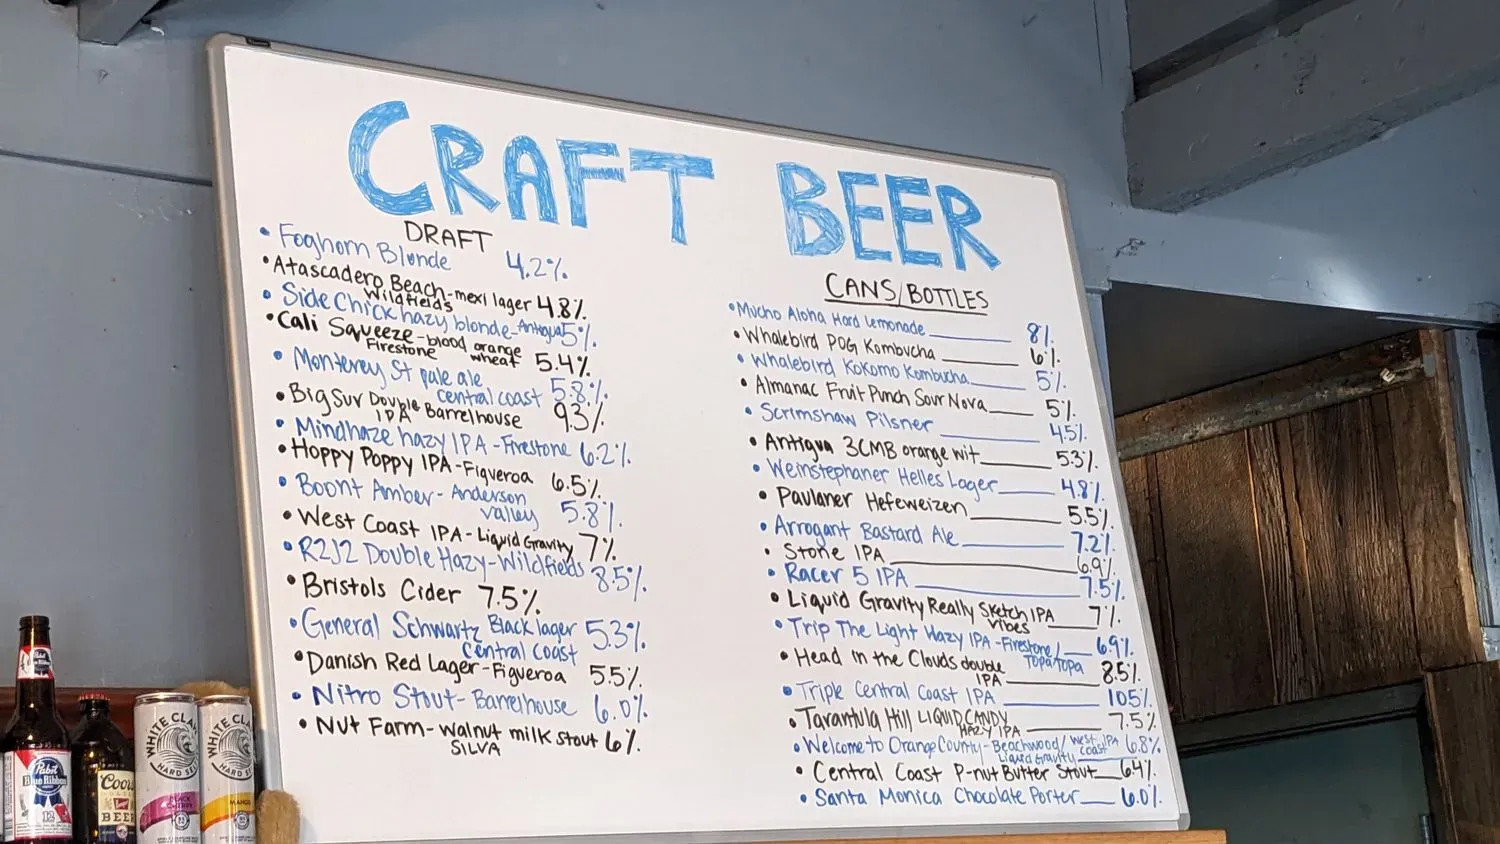 CRAFT BEER
DRAFT
• Foghorn Blonde 4.2%
• Atascadero Beach-mexi lager 4.8%
Wildfields
• Side Chick hazy blonde-Antigua 5%
• Cali Squeeze-blood orange wheat 5.4%
Firestone
• Monterey St pale ale
central coast 5.8%
• Big Sur Double IPA Barrelhouse 9.3%
• Mindhaze hazy IPA-Firestone 6.2%
• Hoppy Poppy IPA-Figueroa 6.5%
• Boont Amber-Anderson
valley 5.8%
• West Coast IPA-Liquid Gravity 7%
• R2J2 Double Hazy-Wildfields 8.5%
• Bristols Cider 7.5%
• General Schwartz Black lager 5.3%
Central coast
• Danish Red Lager-Figueroa 5.5%
• Nitro Stout-Barrelhouse 6.0%
• Nut Farm-walnut milk stout 6%
SILVA
CANS/BOTTLES
• Mucho Aloha Hard Lemonade 8%
• Whalebird POG Kombucha 6%
• Whalebird Kokomo Kombucha 5%
• Almanac Fruit Punch Sour Nova 5%
• Scrimshaw Pilsner 4.5%
• Antigua 3CMB orange wit 5.3%
• Weinstephaner Helles Lager 4.8%
• Paulaner Hefeweizen 5.5%
• Arrogant Bastard Ale 7.2%
• Stone IPA 6.9%
• Racer 5 IPA 7.5%
• Liquid Gravity Really Sketch IPA 7%
vibes
• Trip The Light Hazy IPA-Firestone/ 6.9%
TOPA TOPA
• Head in the Clouds double 8.5%
IPA
• Triple Central Coast IPA 10.5%
• Tarantula Hill LIQUID CANDY 7.5%
HAZY IPA
• Welcome to Orange County-Beachwood/ West IPA 6.8%
Liquid Gravity coast
• Central Coast P-nut Butter Stout 6.4%
• Santa Monica Chocolate Porter 6.0%
Pabst
Blue Ribbon
12
Coors
BEER
WHITE CLAW
HARD SE
BLACK
CHERRY
WHITE CLA
HARD SE
MANGO